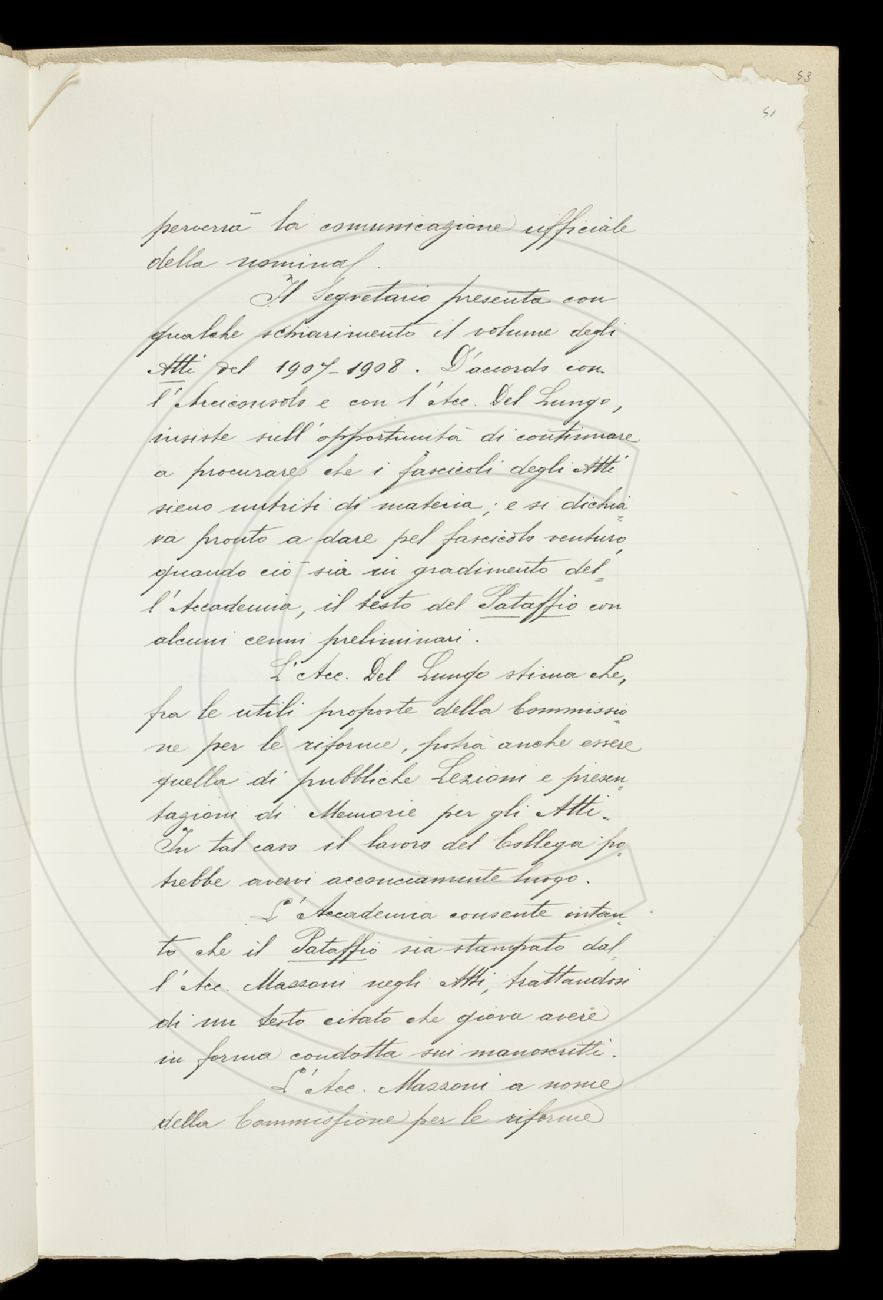 53
51
perverrà la comunicazione ufficiale
della nomina.
Il Segretario presenta con
qualche schiarimento il volume degli
Atti del 1907-1908. D'accordo con
l'Arciconsolo e con l'Acc. Del Lungo,
insiste sull'opportunità di continuare
a procurare che i fascicoli degli Atti
sieno nutriti di materia; e si dichia=
ra pronto a dare pel fascicolo venturo,
quando ciò sia in gradimento del=
l'Accademia, il testo del Pataffio con
alcuni cenni preliminari.
L'Acc. Del Lungo stima che,
fra le utili proposte della Commissio=
ne per le riforme, potrà anche essere
quella di pubbliche Lezioni e presen=
tazioni di Memorie per gli Atti.
In tal caso il lavoro del Collega po=
trebbe avervi acconciamente luogo.
L'Accademia consente intan=
to che il Pataffio sia stampato dal=
l'Acc. Mazzoni negli Atti, trattandosi
di un testo citato che giova avere
in forma condotta sui manoscritti.
L'Acc. Mazzoni a nome
della Commissione per le riforme